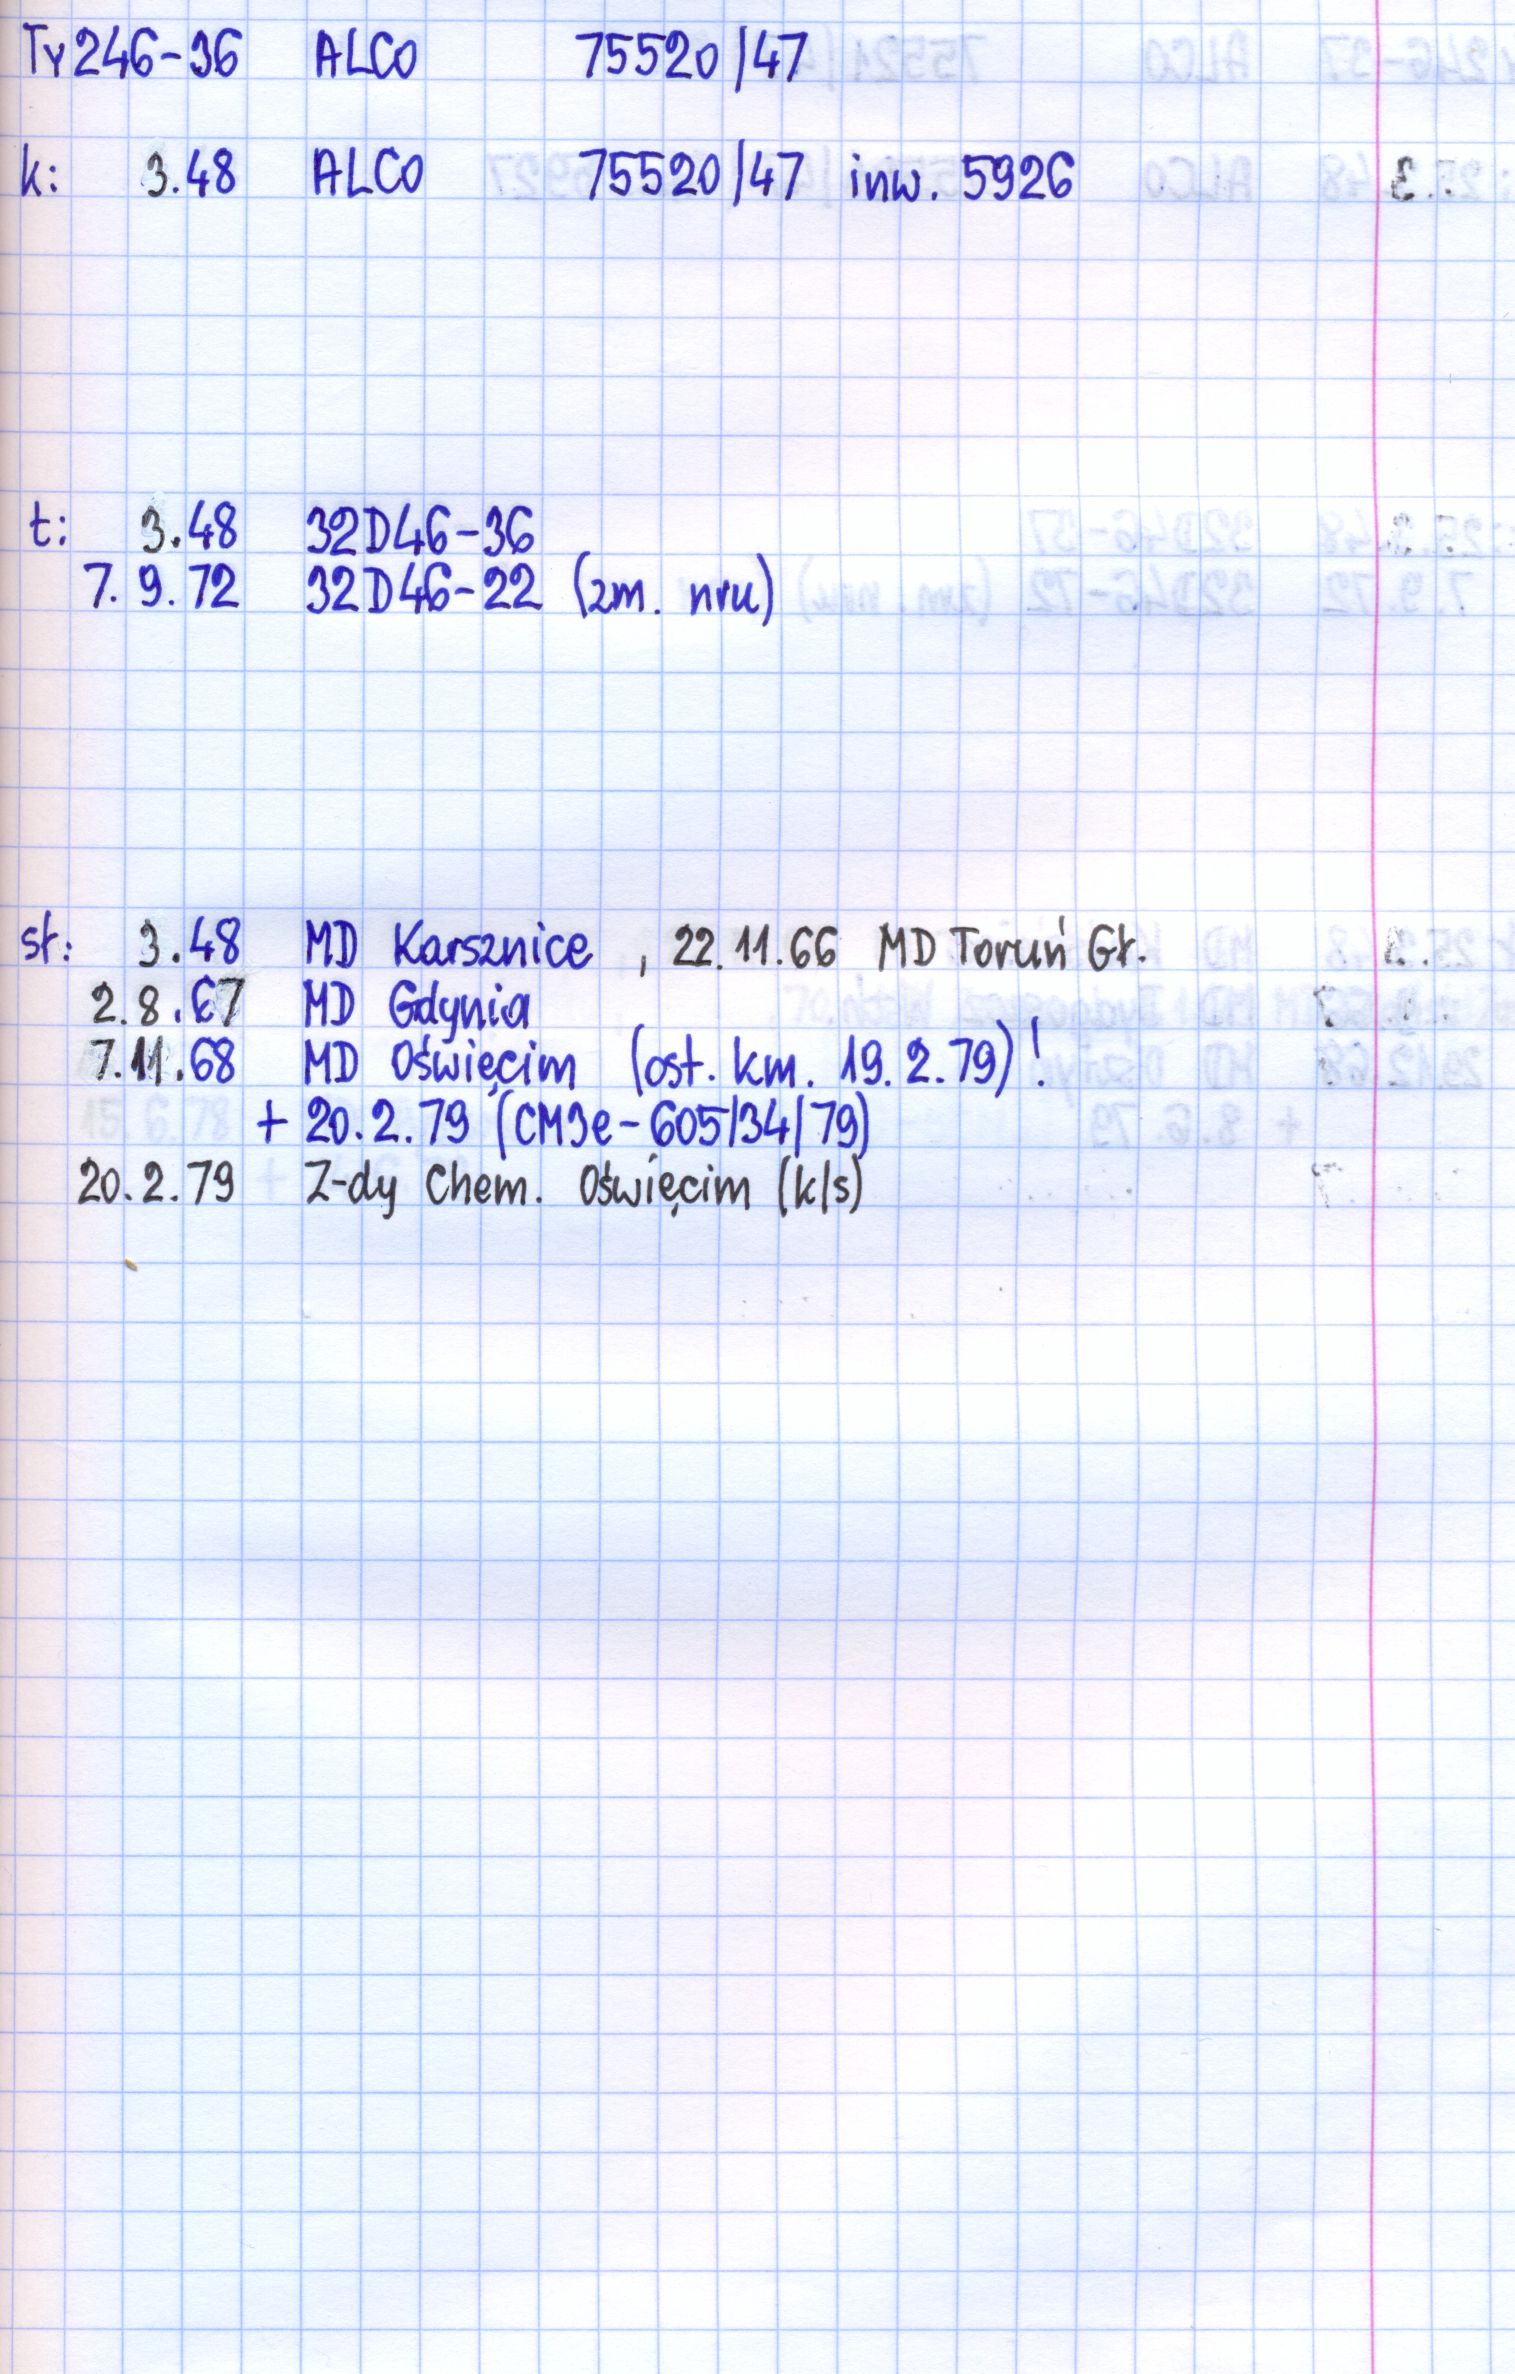 Ty246-36 ALCO 75520/47
k: 3.48 ALCO 75520/47 inw. 5926
t: 3.48 32D46-36
7.9.72 32D46-22 (zm. nru)
st: 3.48 MD Karsznice , 22.11.66 MD Toruń Gł.
2.8.67 MD Gdynia
7.11.68 MD Oświęcim (ost. km. 19.2.79)!
+ 20.2.79 (CM3e-605/34/79)
20.2.79 Z-dy Chem. Oświęcim (k/s)